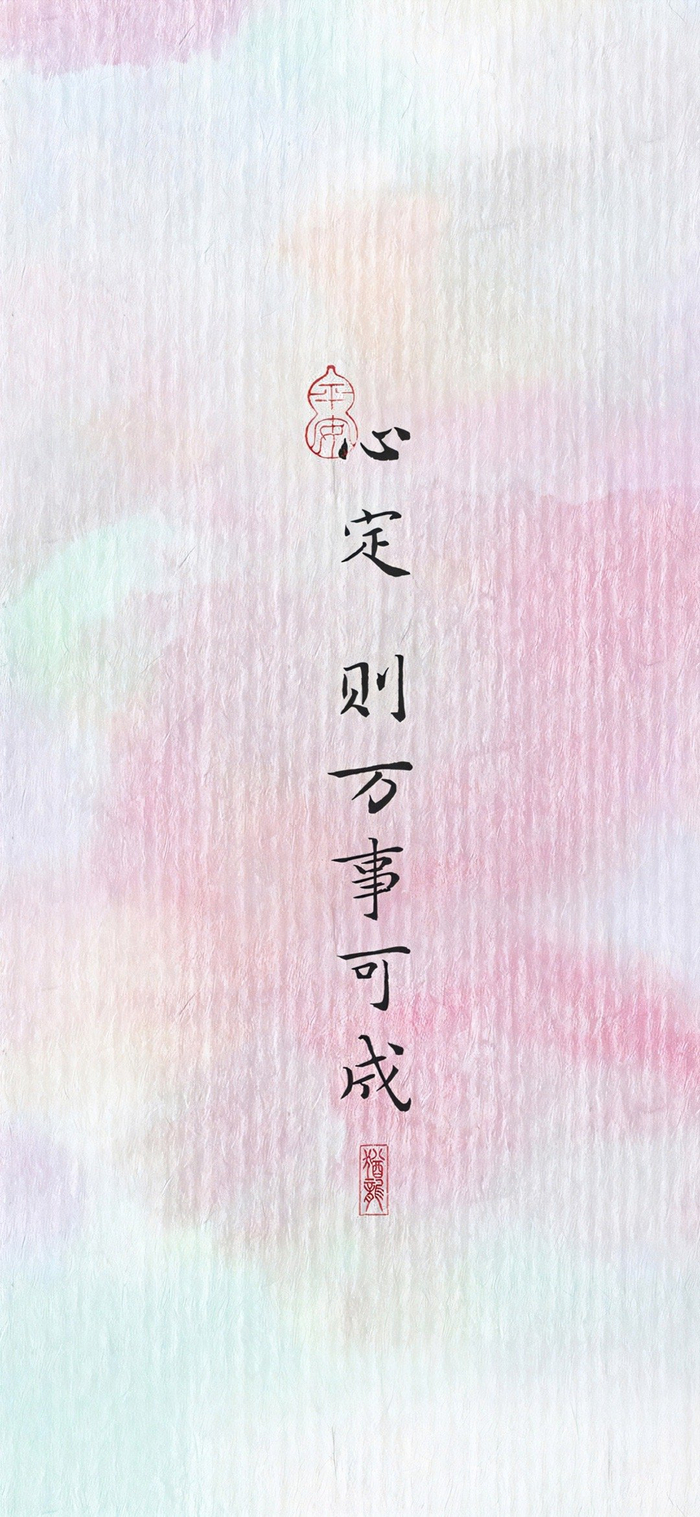 平安
心定 则万事可成
猶龍